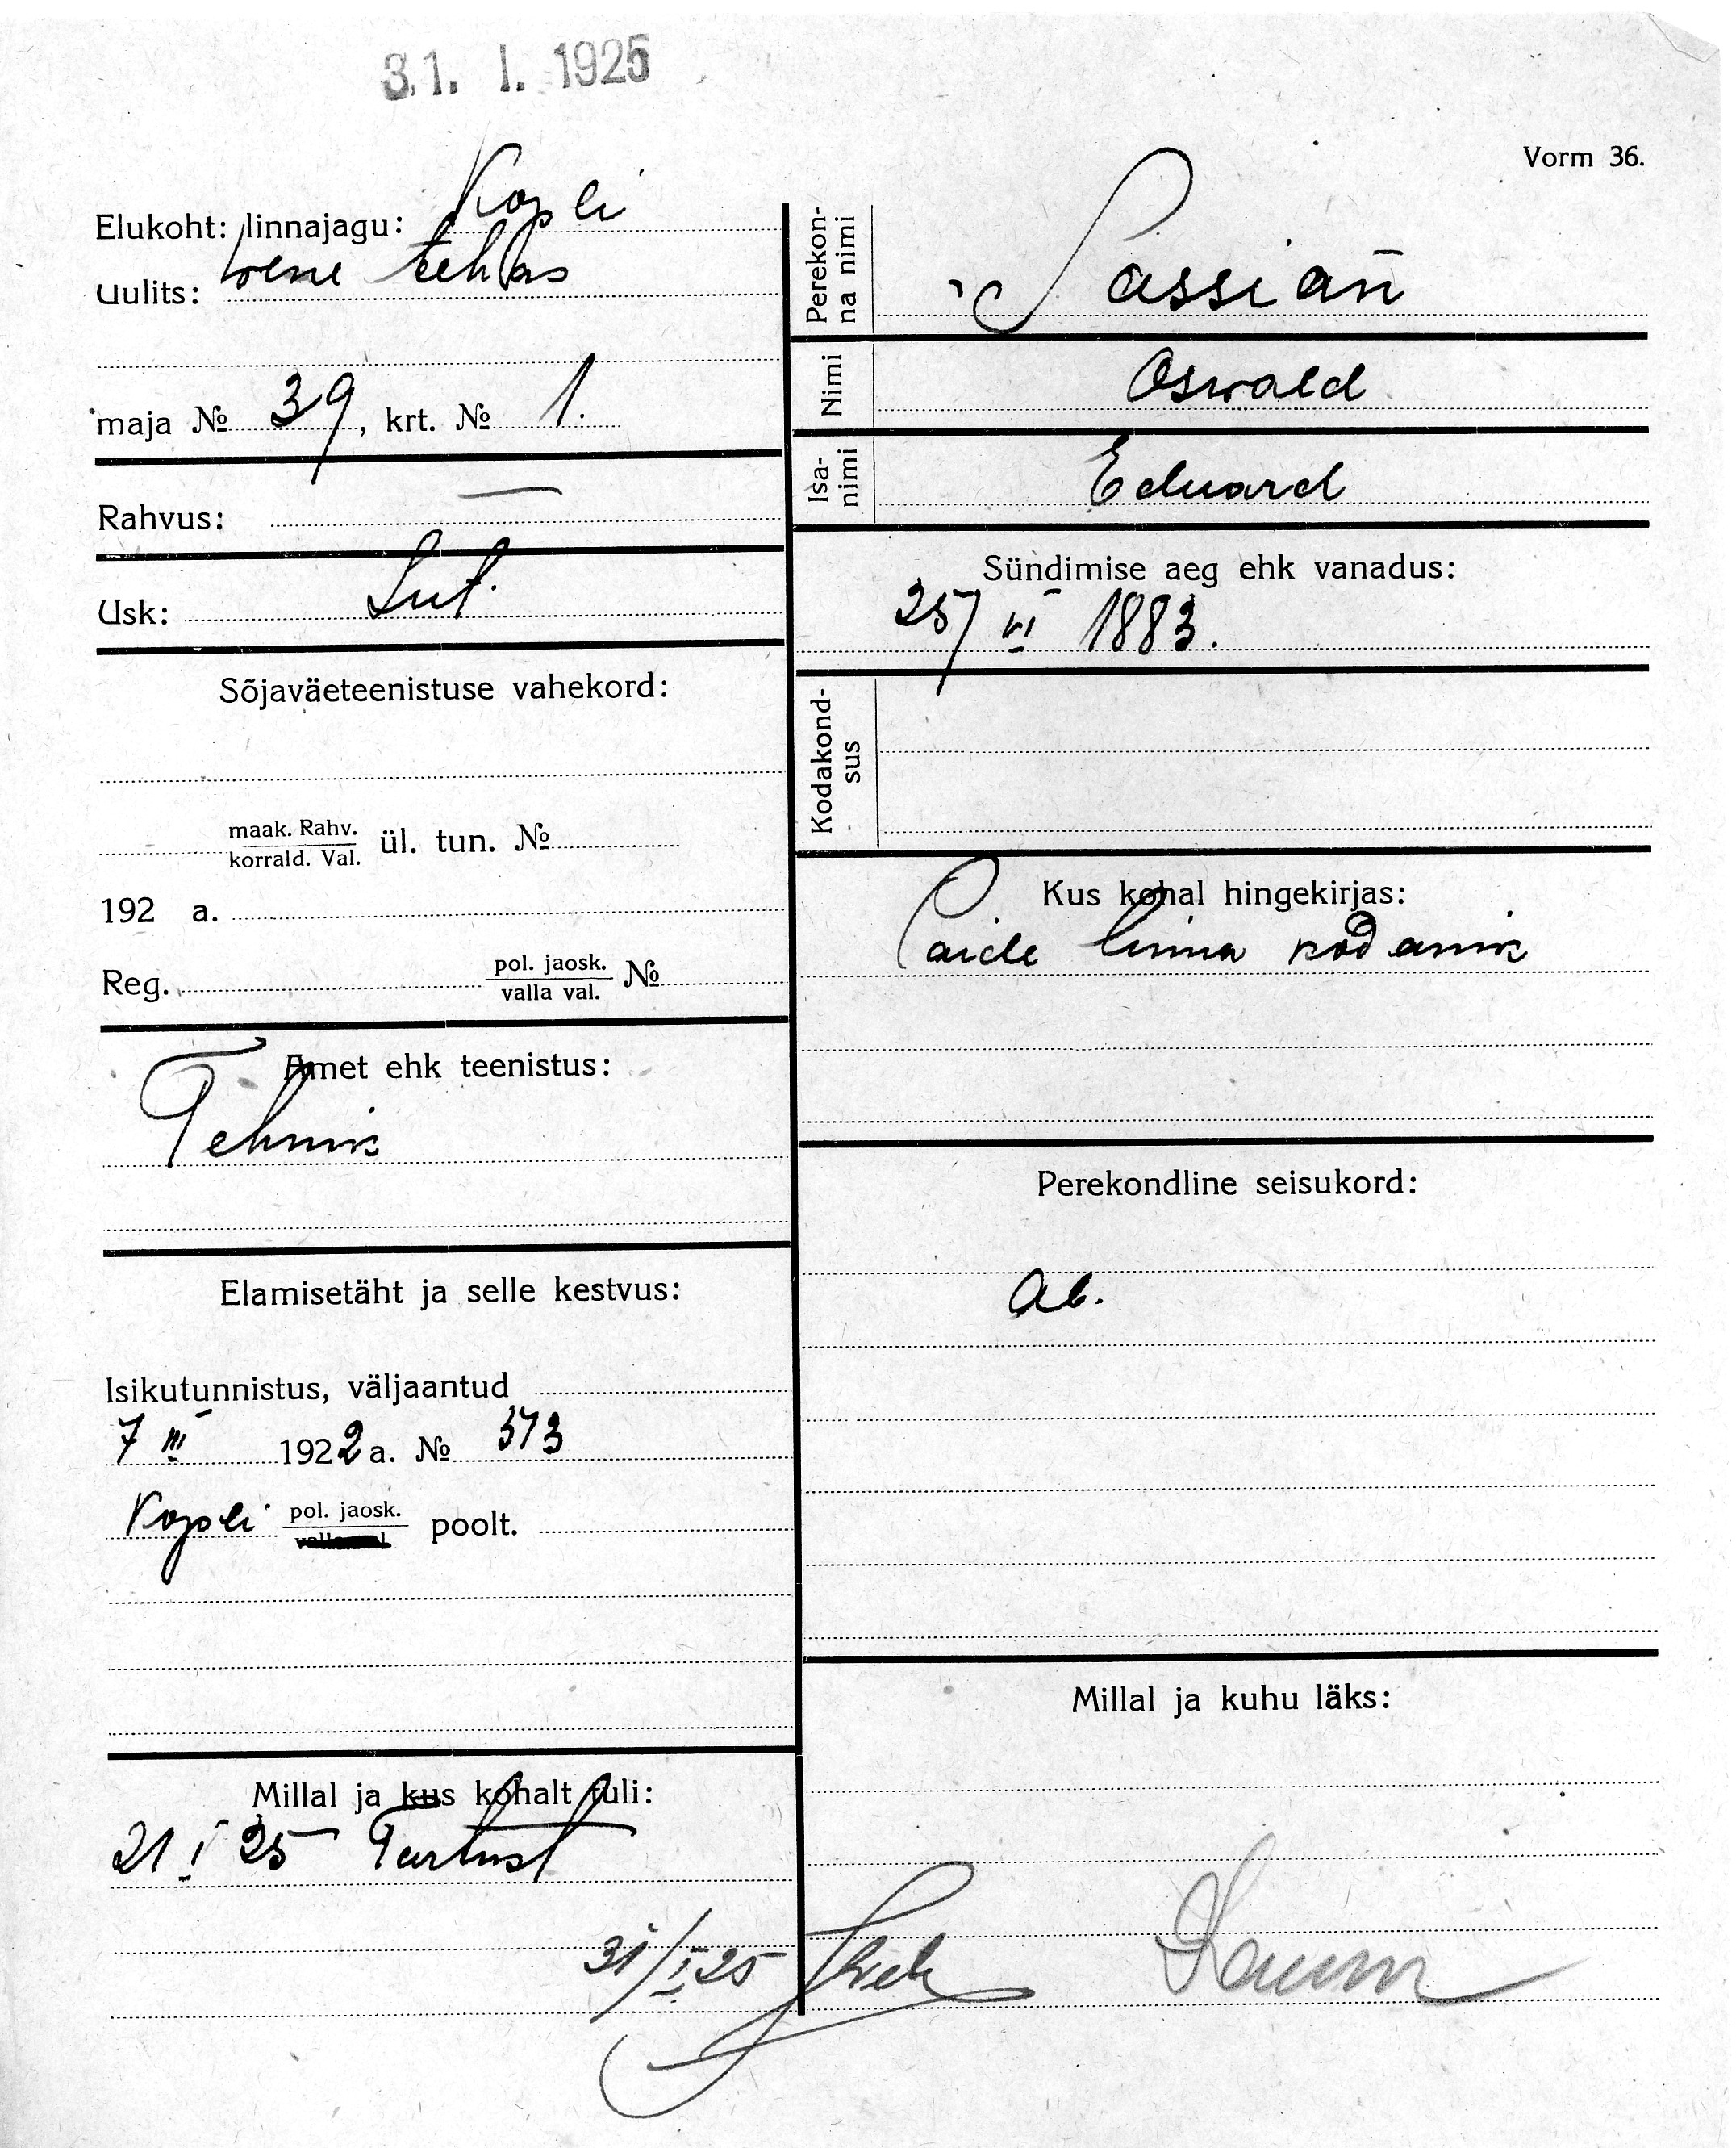 31. I. 1925
Vorm 36.
Elukoht: linnajagu: Kopli
Uulits: wene tehas
maja № 39, krt. № 1.
Rahvus: —
Usk: Lut.
Sõjaväeteenistuse vahekord:
maak. Rahv.
korrald. Val. ül. tun. №
192 a.
Reg. pol. jaosk.
valla val. №
Amet ehk teenistus:
Tehnik
Elamisetäht ja selle kestvus:
Isikutunnistus, väljaantud
7 III 1922 a. № 573
Kopli pol. jaosk. poolt.
Millal ja kus kohalt tuli:
21 I 25 Tartust
31/I 25
Perekon-
na nimi
Sassian
Nimi Oswald
Isa-
nimi Eduard
Sündimise aeg ehk vanadus:
25/VI 1883.
Kodakond-
sus
Kus kohal hingekirjas:
Paide linna kodanik
Perekondline seisukord:
Ab.
Millal ja kuhu läks: